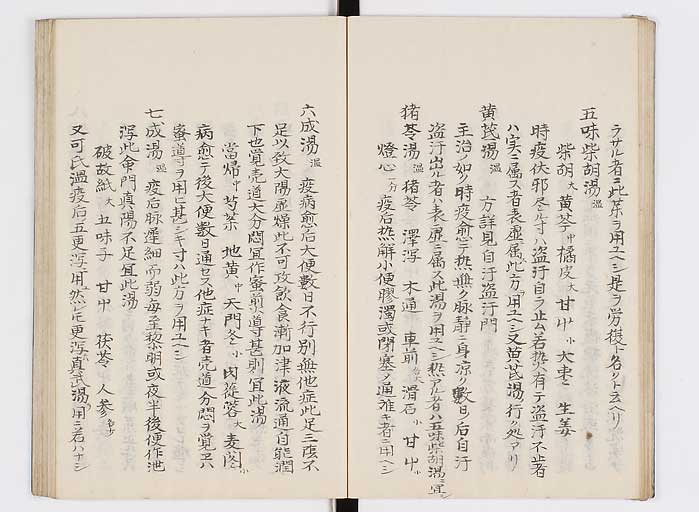 ラサル者ニ此菜ヲ用ユヘシ是ヲ労復ト名クト云ヘリ
五味柴胡湯 温
柴胡大 黄芩中 橘皮大 甘中小 大棗ニ 生姜
時疫伏邪尽ル寸ハ盗汗自ラ止ム若热有テ盗汗不止者
ハ実ニ属ス者表虚ニ属ハ此方ヲ用ユヘシ又黄芪湯ノ行ク処アリ
黄芪湯 温 方詳見自汗盗汗門
主治ノ如ク時疫愈テ热無ク脉静ニ身凉ク數日ノ后自汗
盗汗出ル者ハ表虚ニ属ス此湯ヲ用ユヘシ热アル者ハ五味柴胡湯ニ宜シ
猪苓湯 温 猪苓 澤泻 木通 車前 滑石小 甘中小
燈心一方 疫后热解小便膠濁或閉塞ノ通难キ者ニ用ユヘシ
六成湯 温 疫病愈后大便數日不行別無他症此足三陰不
足以致大陽虚燥此不可攻飲食漸加津液流通自能潤
下也覚壳道大分悶宜作蜜煎導寸甚則宜此湯
當帰中 芍藥 地黄中 天門冬小 肉蓯蓉大 麦門小
病愈テ後大便數日通セス他症ナキ者壳道分悶ヲ覚ヱハ
蜜導ヲ用ヒ甚シキ寸ハ此方ヲ用ユヘシ
七成湯 温 疫后脉遲細而弱每至黎明或夜半後便作泄
泻此命門真陽不足宜此湯
破故紙大 五味子 甘中 茯苓 人参
又可氏温疫后五更泻ニ用然トモ更泻真武湯ヲ用ニ若ハナシ